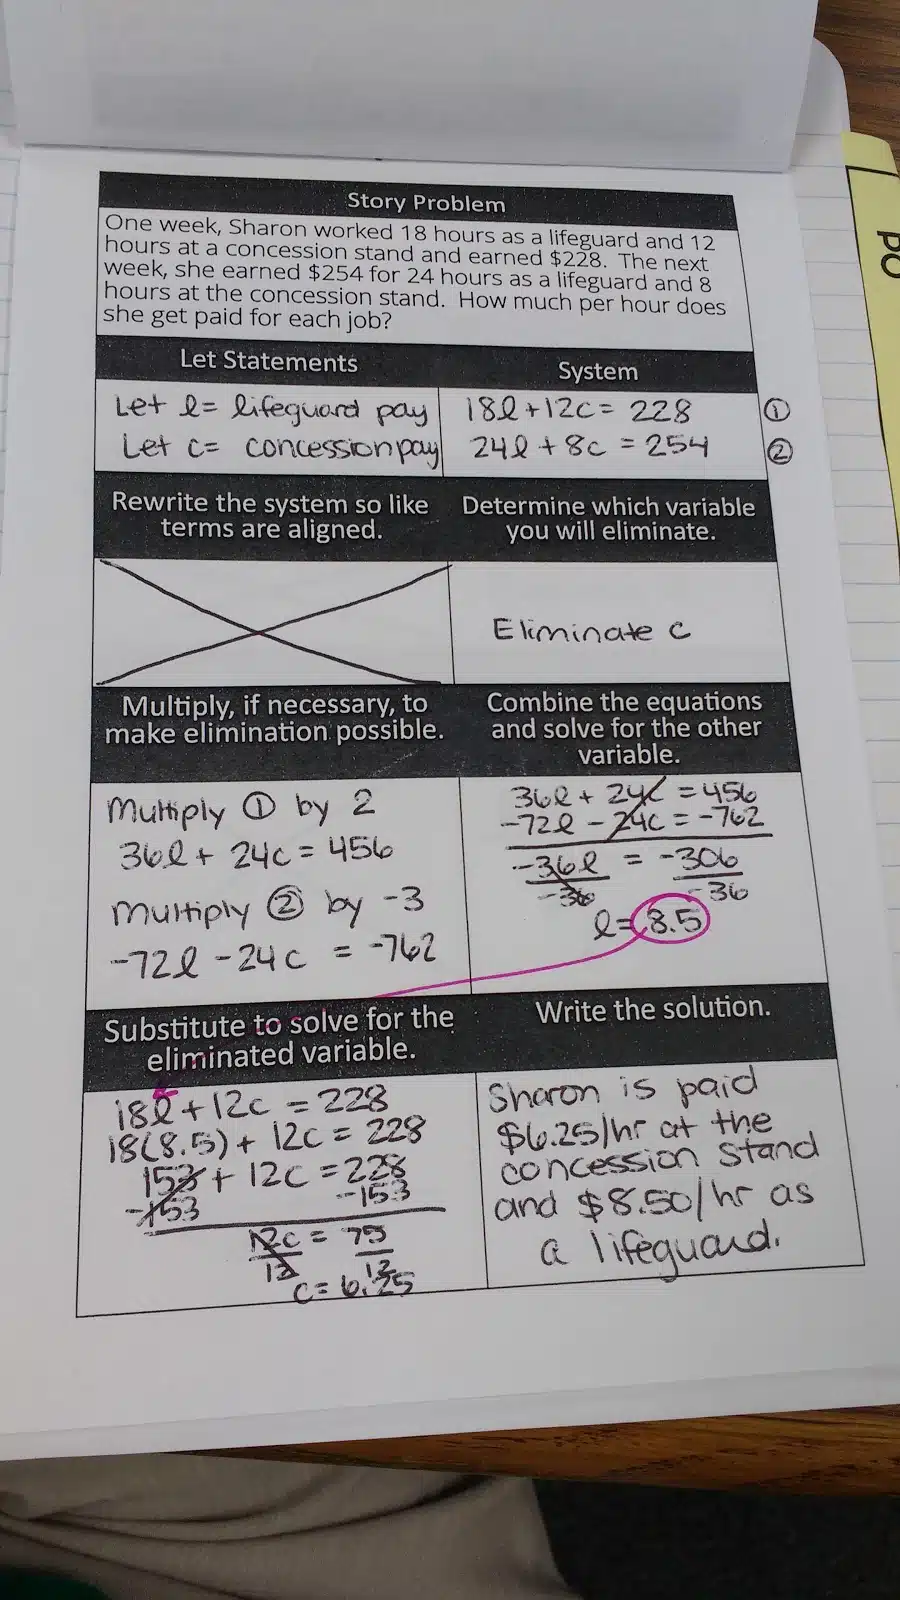 Story Problem
One week, Sharon worked 18 hours as a lifeguard and 12
hours at a concession stand and earned $228. The next
week, she earned $254 for 24 hours as a lifeguard and 8
hours at the concession stand. How much per hour does
she get paid for each job?
Let Statements
Let l= lifeguard pay
Let c= concession pay
System
18l+12c= 228 ①
24l+8c =254 ②
Rewrite the system so like
terms are aligned.
Determine which variable
you will eliminate.
Eliminate c
Multiply, if necessary, to
make elimination possible.
Multiply ① by 2
36l+ 24c= 456
Multiply ② by -3
-72l -24c = -762
Combine the equations
and solve for the other
variable.
36l+ 24c =456
-72l - 24c = -762
-36l = -306
-36 -36
l= 8.5
Substitute to solve for the
eliminated variable.
18l+12c =228
18(8.5)+ 12c= 228
153+ 12c =228
-153 -153
12c = 75
12 12
c= 6.25
Write the solution.
Sharon is paid
$6.25/hr at the
concession stand
and $8.50/hr as
a lifeguard.
po